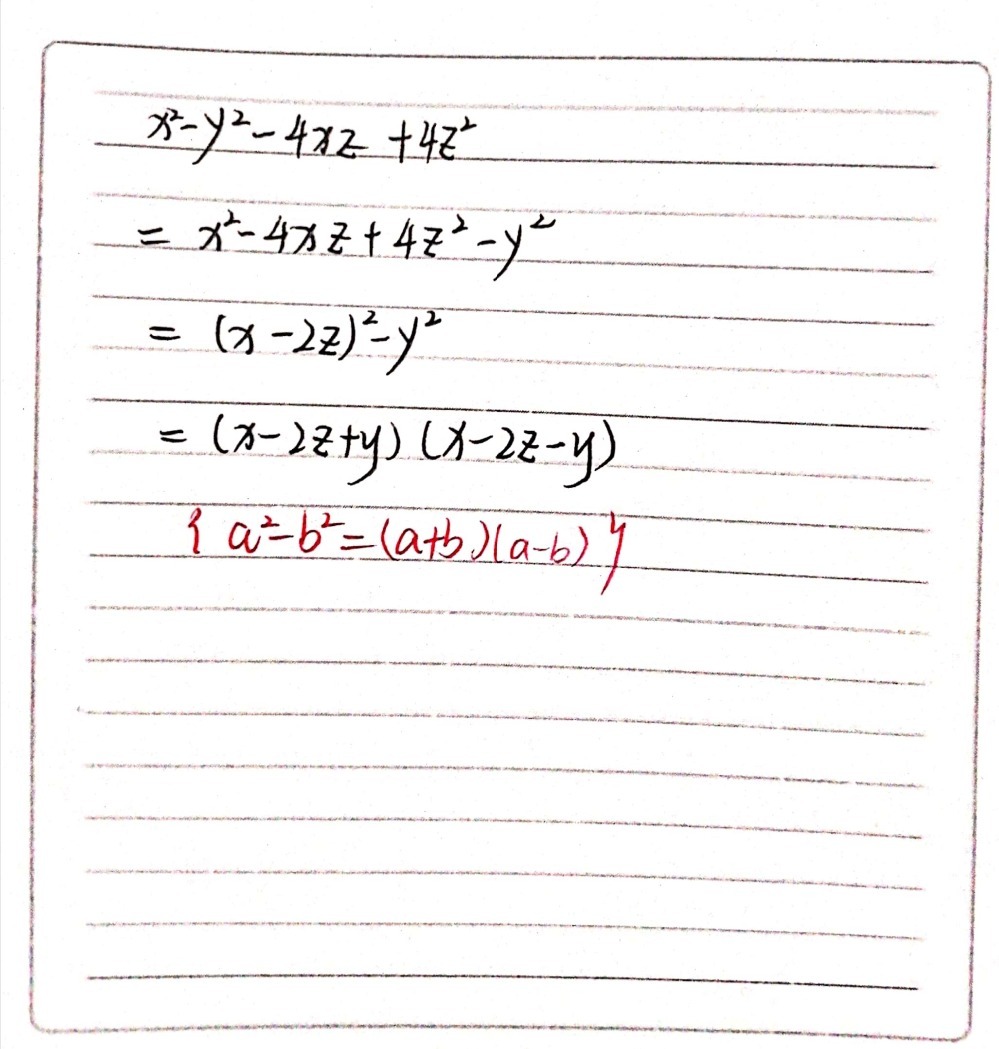 x²-y²-4xz+4z²
= x²-4xz+4z²-y²
= (x-2z)²-y²
= (x-2z+y)(x-2z-y)
{a²-b²=(a+b)(a-b)}